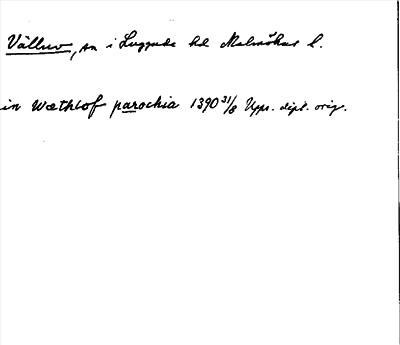 Välluv, sn i Luggude hd Malmöhus l.
in wæthlof parochia 1390 31/8 Upps. dipl. orig.